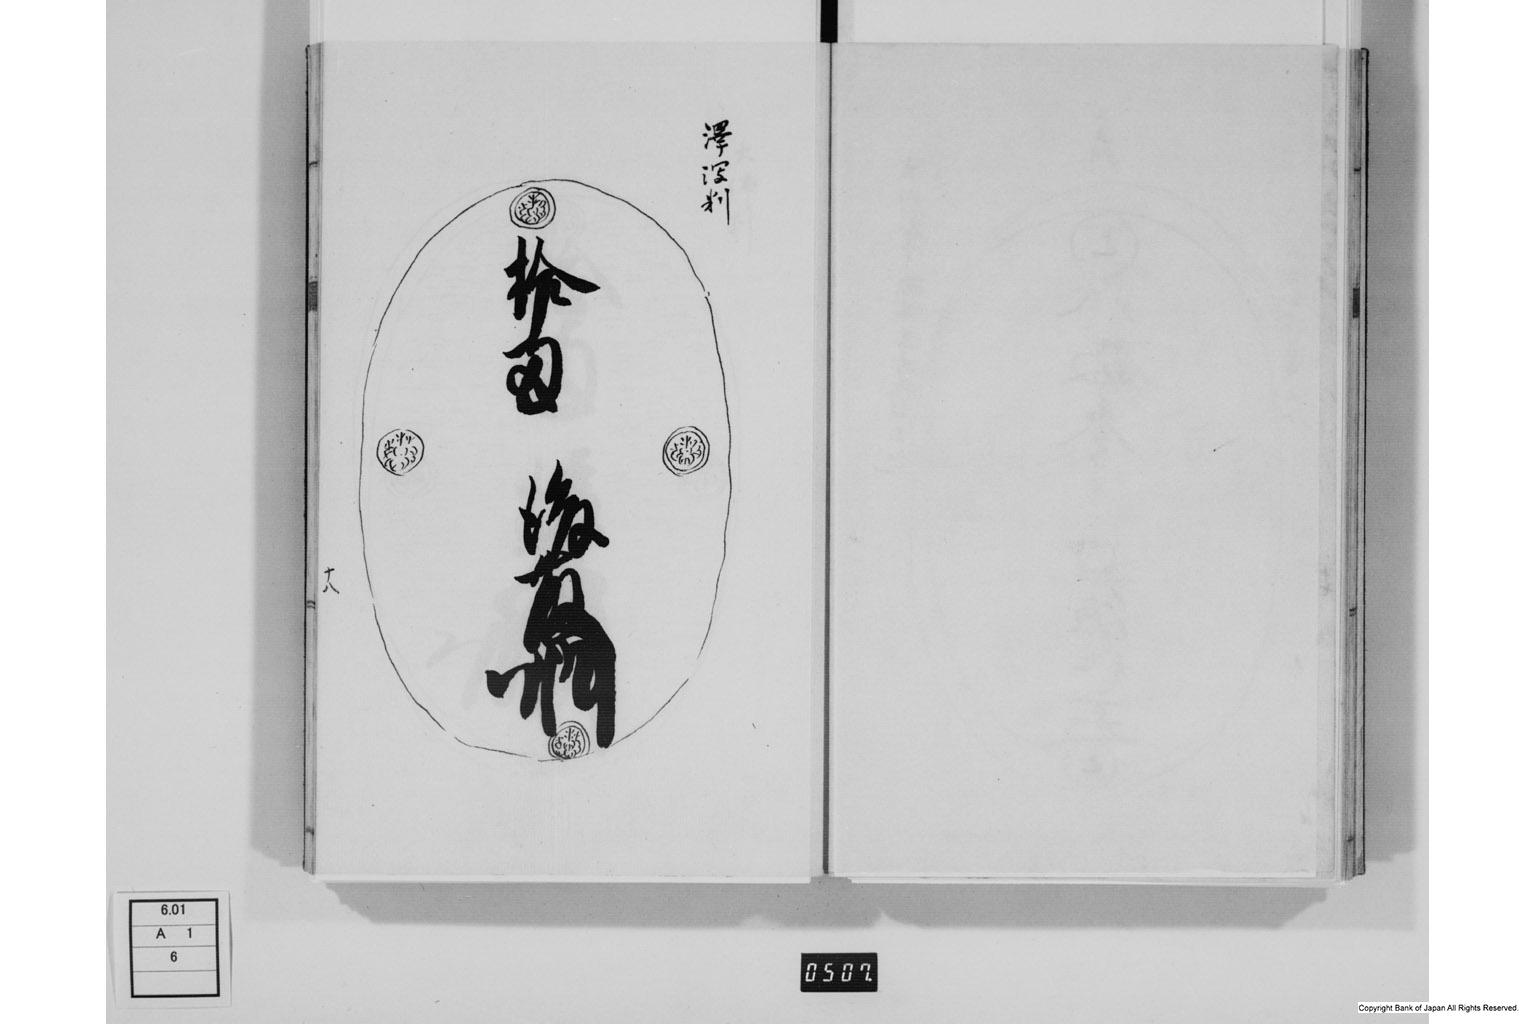 澤瀉判
拾両
後藤
十八
6.01
A 1
6
0507.
Copyright Bank of Japan All Rights Reserved.